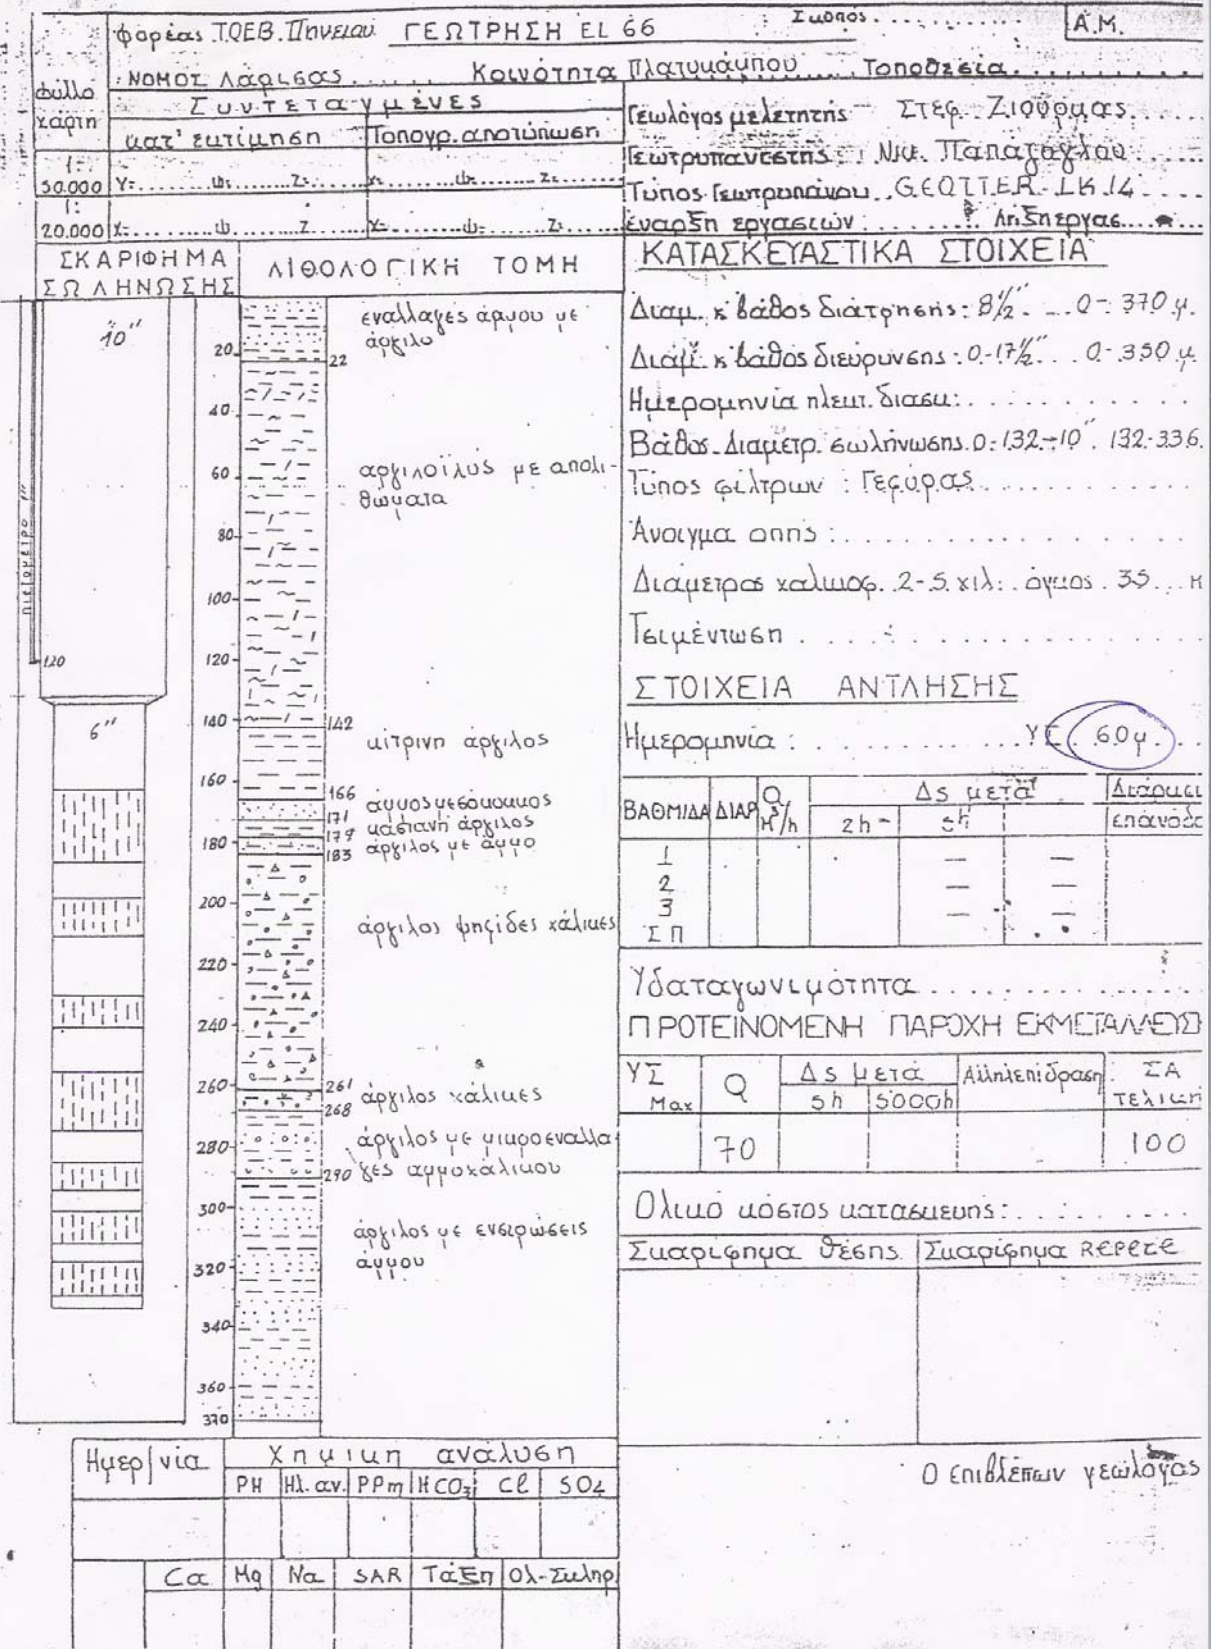 φορέας Τ.Ο.Ε.Β. Πηνειού ΓΕΩΤΡΗΣΗ EL 66 Σκοπός. Α.Μ.
ΝΟΜΟΣ Λάρισας Κοινότητα Πλατυκάμπου Τοποθεσία
φύλλο χάρτη
Συντεταγμένες
κατ' εκτίμηση Τοπογρ. αποτύπωση
1: 50.000 Υ= ω= Ζ= Χ= ω= Ζ=
1: 20.000 Χ= ψ Ζ Χ= ψ= Ζ=
Γεωλόγος μελετητής Στεφ. Ζιούρμας
Γεωτρυπανιστής: Νικ. Παπάζογλου
Τύπος Γεωτρυπάνου GEOTTER-LK 14
έναρξη εργασιών: Λήξη εργας.
ΣΚΑΡΙΦΗΜΑ
ΣΩΛΗΝΩΣΗΣ
ΛΙΘΟΛΟΓΙΚΗ ΤΟΜΗ
10"
πιεζόμετρο 1"
120
6"
20
40
60
80
100
120
140
160
180
200
220
240
260
280
300
320
340
360
370
εναλλαγές άμμου με
άργιλο
22
αργιλοϊλύς με απολι-
θώματα
142
κίτρινη άργιλος
166
άμμος μεσόκοκκος
171
καστανή άργιλος
177
άργιλος με άμμο
183
άργιλος ψηφίδες χάλικες
261
άργιλος χάλικες
268
άργιλος με μικροεναλλα-
γές αμμοχάλικου
290
άργιλος με ενστρώσεις
άμμου
ΚΑΤΑΣΚΕΥΑΣΤΙΚΑ ΣΤΟΙΧΕΙΑ
Διαμ. κ βάθος διάτρησης: 8½" 0-370 μ.
Διαμ. κ βάθος διεύρυνσης: 0-17½" 0-350 μ
Ημερομηνία ηλεκτ. διασκ:
Βάθος-Διαμέτρ. σωλήνωσης 0-132-10" 132-336
Τύπος φίλτρων: Γεφύρας
Άνοιγμα οπής:
Διάμετρος χαλικοφ. 2-5 χιλ: όγκος 35 Μ
Τσιμέντωση
ΣΤΟΙΧΕΙΑ ΑΝΤΛΗΣΗΣ
Ημερομηνία: ΥΣ 60μ.
ΒΑΘΜΙΔΑ ΔΙΑΡ Q Μ³/h Δs μετά Διάρκει
2h - 5h επάνοδο
1 — —
2 — —
3 — —
ΣΠ
Υδαταγωγιμότητα
ΠΡΟΤΕΙΝΟΜΕΝΗ ΠΑΡΟΧΗ ΕΚΜΕΤΑΛΛΕΥΣ
ΥΣ Max Q Δs μετά Αλληλεπίδραση ΣΑ τελική
5h 5000h
70 100
Ολικό κόστος κατασκευής:
Σκαρίφημα θέσης Σκαρίφημα REPERE
Ημερ/νία Χημική ανάλυση
PH Ηλ. αγ. PPm HCO3 Cl SO4
Ca Mg Na SAR Τάξη Ολ-Σκληρ
Ο επιβλέπων γεωλόγος